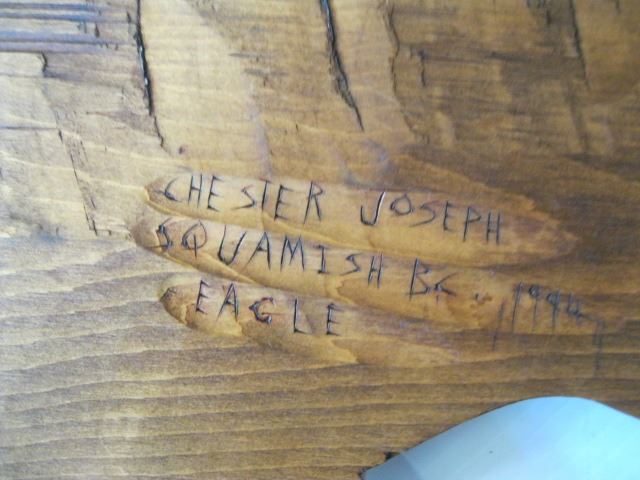 CHESTER JOSEPH
SQUAMISH BC. 1994
EAGLE